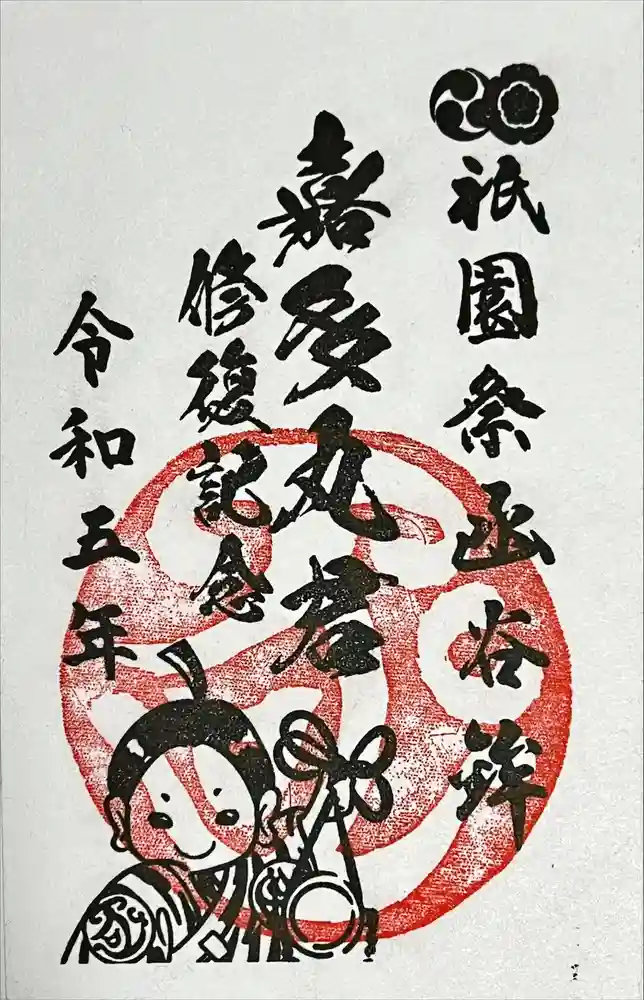 祇園祭函谷鉾
嘉多丸君
修復記念
令和五年